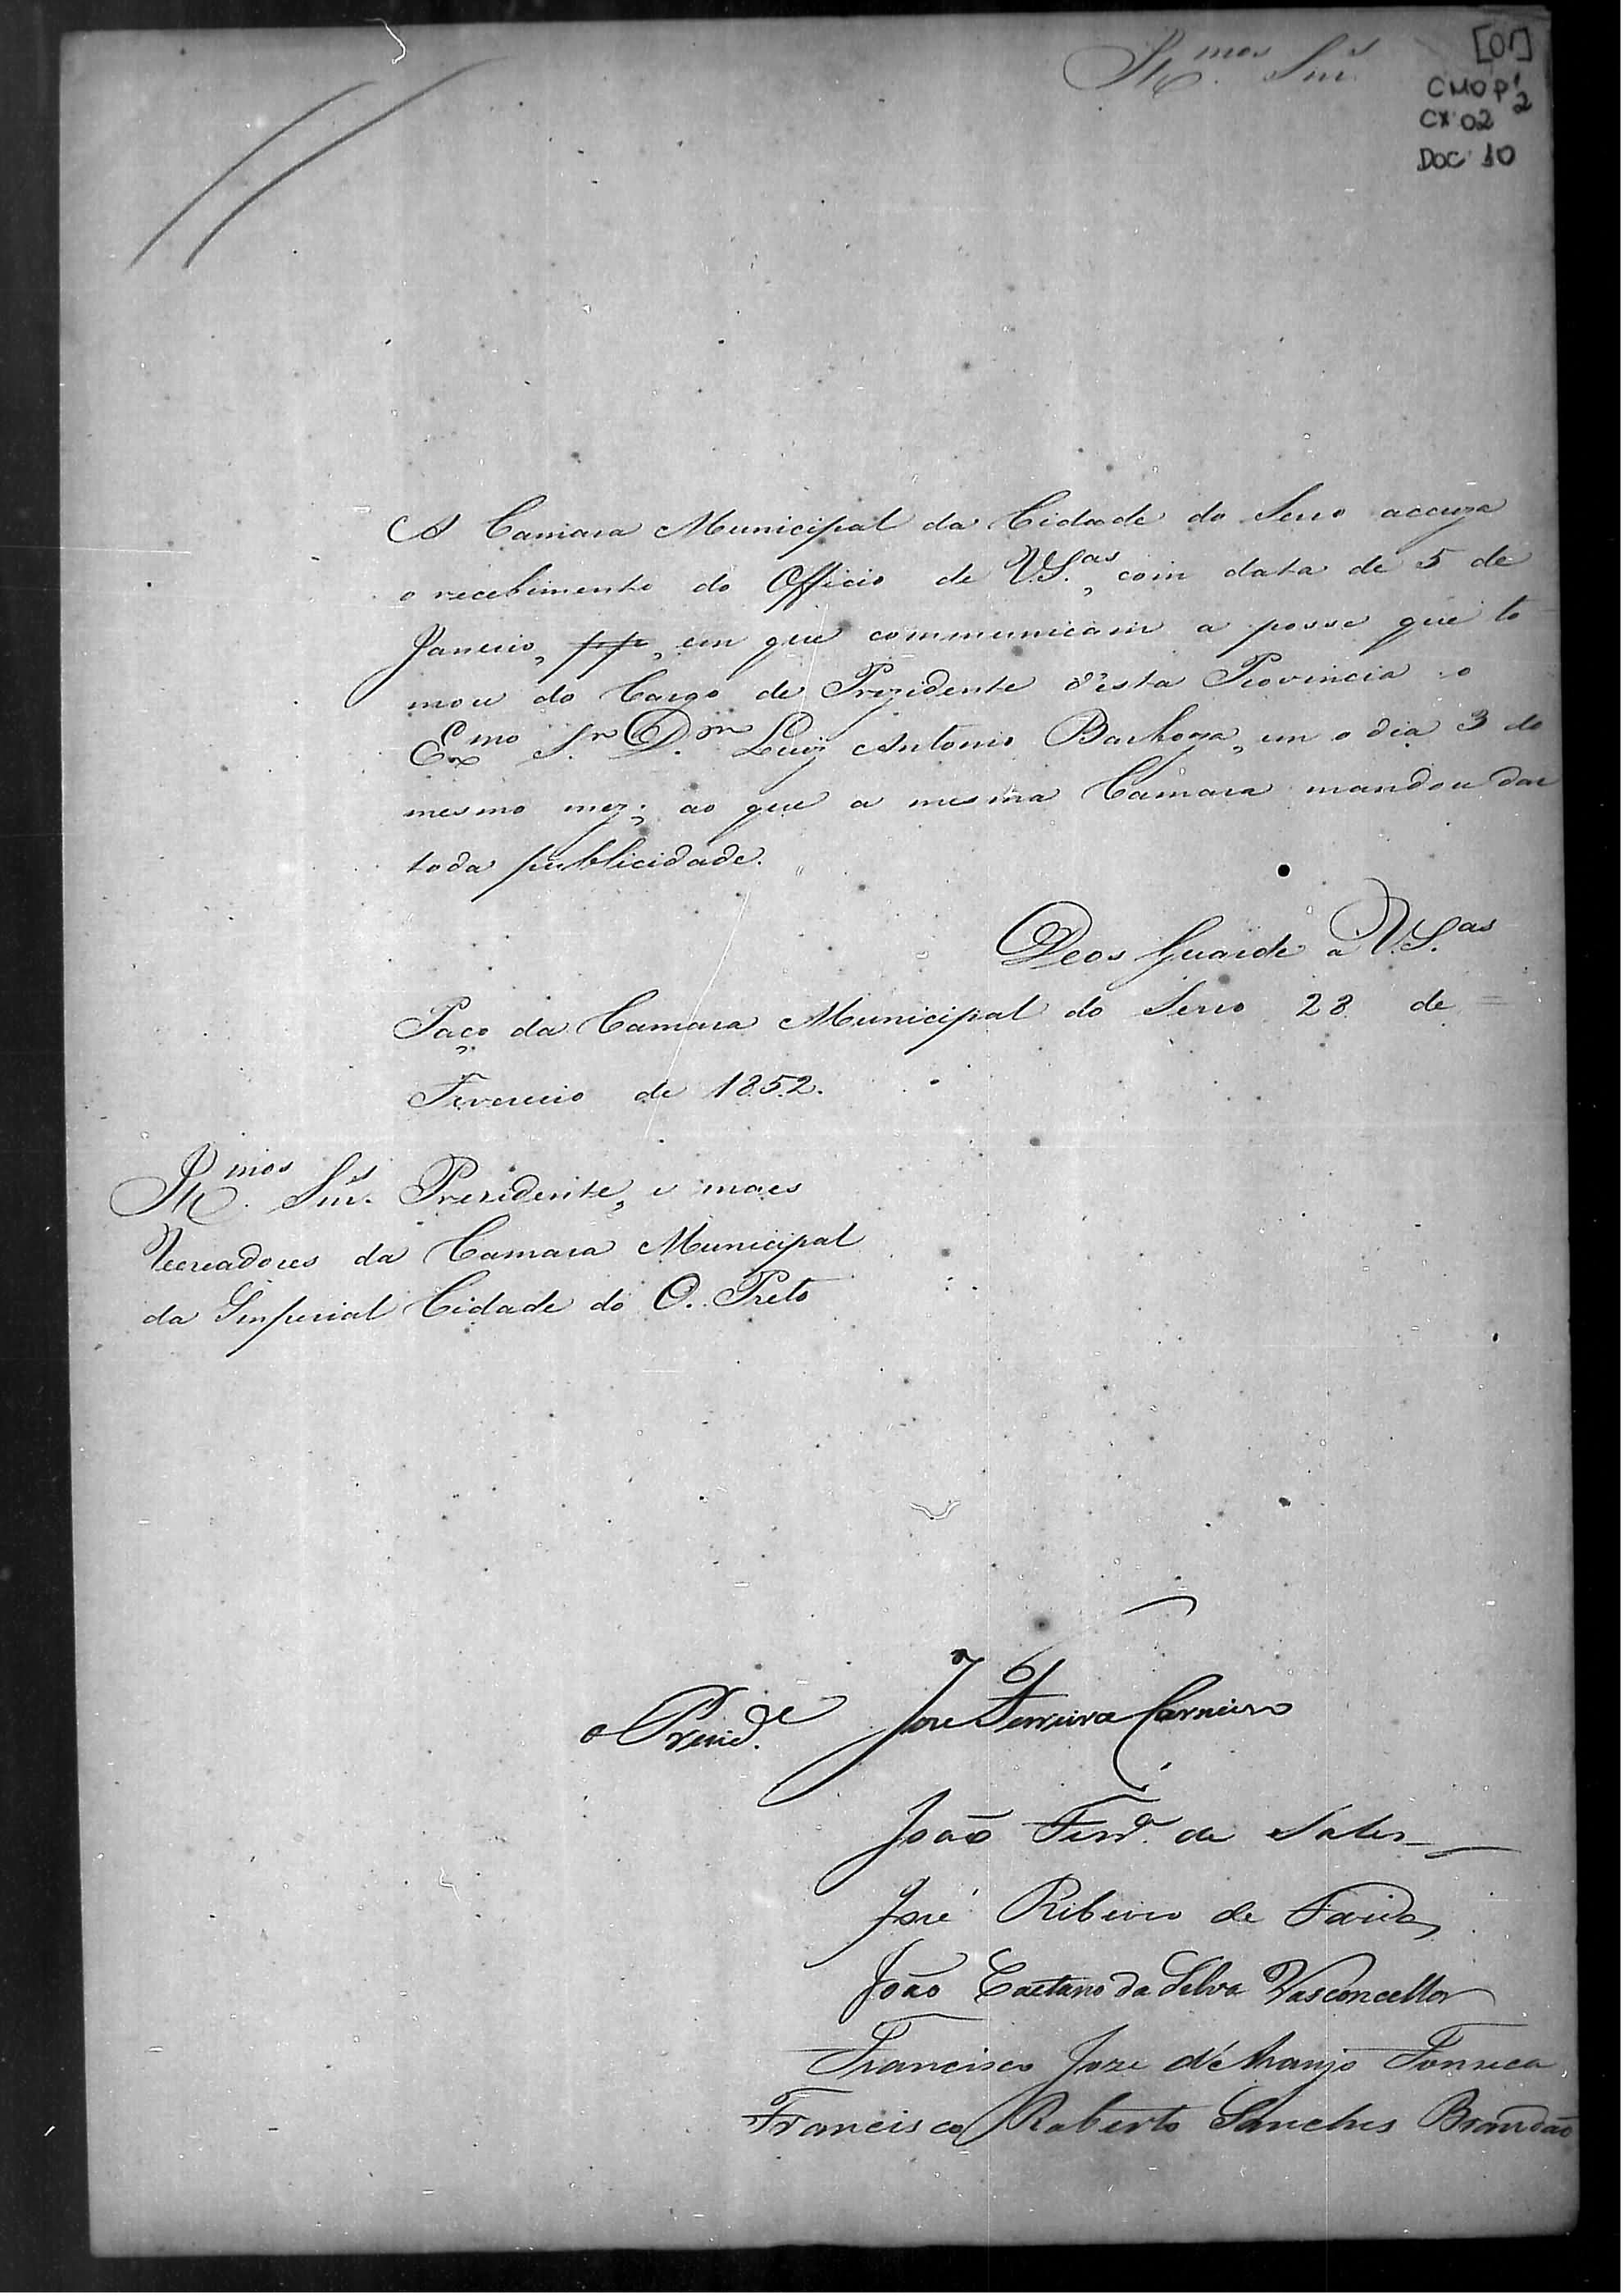 Ill.mos Snrs
[01]
CMOP 1/2
CX 02
DOC 10
A Camara Municipal da Cidade do Serro accuza
o recebimento do Officio de V.S.as, com data de 5 de
Janeiro, pp, em que communicam a posse que to
mou do Cargo de Prezidente d'esta Provincia o
Exmo Snr Dor Luiz Antonio Barboza, em o dia 3 do
mesmo mez; ao que a mesma Camara mandou dar
toda publicidade.
Deos Guarde a V.S.as
Paço da Camara Municipal do Serro 28 de
Fevereiro de 1852.
Ill.mos Snrs. Prezidente, e maes
Vereadores da Camara Municipal
da Imperial Cidade do O. Preto
o Presid.e José Ferreira Carneiro
João Ferr.a de Salles
José Ribeiro de Faria
João Caetano da Silva Vasconcellos
Francisco Joze d'Araujo Fonseca
Francisco Roberto Sanches Brandão